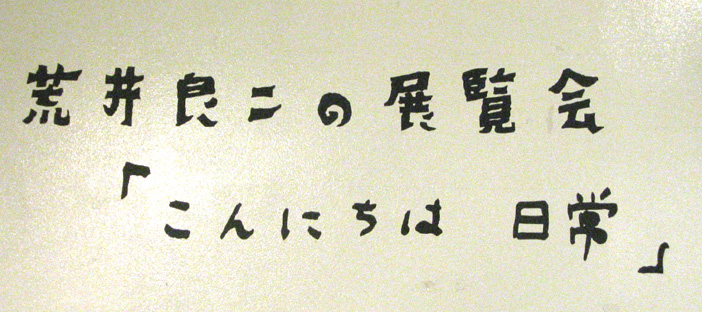 荒井良二の展覧会
「こんにちは 日常」